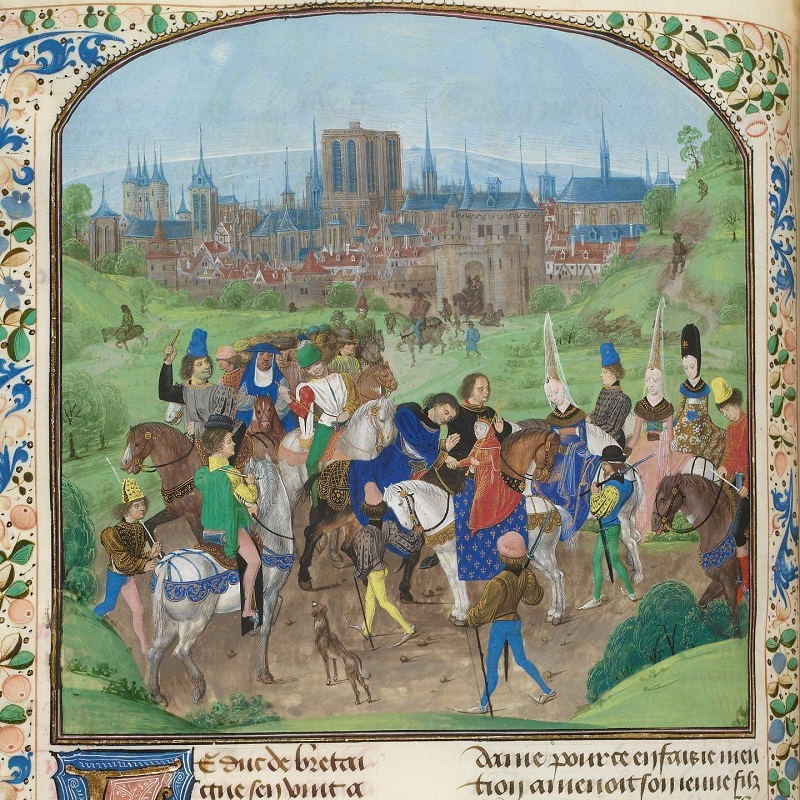 LE duc de bretai
gne sen vint a
dame pour ce en fais ie men
tion amenoit son ieune filz